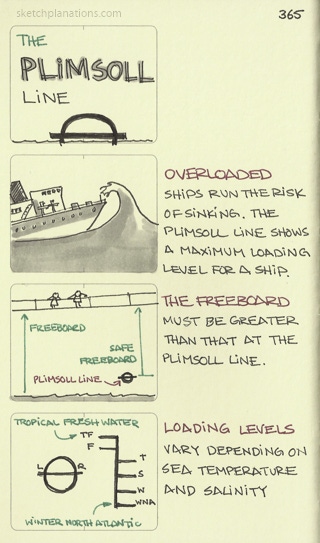 sketchplanations.com
365
THE
PLIMSOLL
LINE
OVERLOADED
SHIPS RUN THE RISK
OF SINKING. THE
PLIMSOLL LINE SHOWS
A MAXIMUM LOADING
LEVEL FOR A SHIP.
FREEBOARD
SAFE
FREEBOARD
PLIMSOLL LINE
THE FREEBOARD
MUST BE GREATER
THAN THAT AT THE
PLIMSOLL LINE.
TROPICAL FRESH WATER
TF
F
L R
T
S
W
WNA
WINTER NORTH ATLANTIC
LOADING LEVELS
VARY DEPENDING ON
SEA TEMPERATURE
AND SALINITY